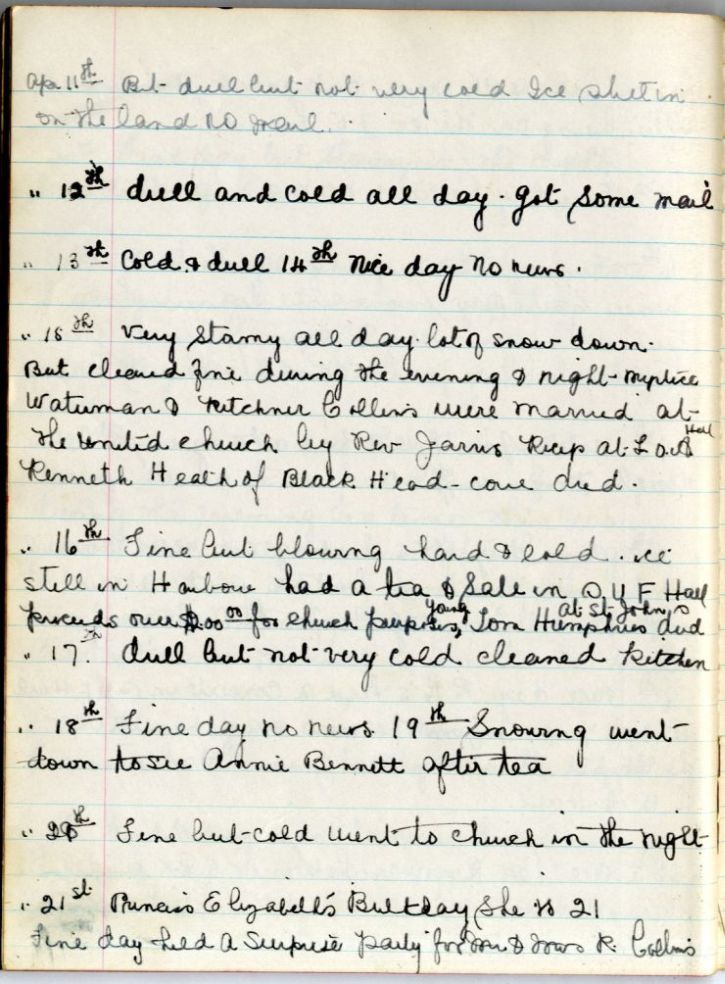 Apr 11th Bit dull but not very cold Ice shet in
on the land no mail.
" 12th dull and cold all day. got some mail
" 13th Cold & dull 14th nice day no news.
" 15th Very stormy all day. lot of snow down.
But cleared fine during the evening & night - Myrtice
Waterman & Kitchner Collins were married at
the United church by Rev Jarvis Recep at L.O.A Hall
Kenneth Heath of Black Head - cove died.
" 16th Fine but blowing hard & cold. ice
still in Harbour had a tea & Sale in S U F Hall
proceeds over 00 for church purposes, young Tom Humphries died at St John's
" 17th. dull but not very cold cleaned kitchen
" 18th Fine day no news 19th Snowing went
down to see Annie Bennett after tea
" 20th Fine but cold went to church in the night
" 21st Princess Elizabeth's Birthday She is 21
Fine day held a Surprise party for Mr & Mrs K. Collins